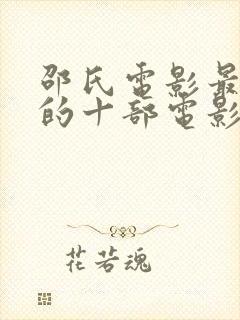 邵氏電影最
的十部電影
花若魂